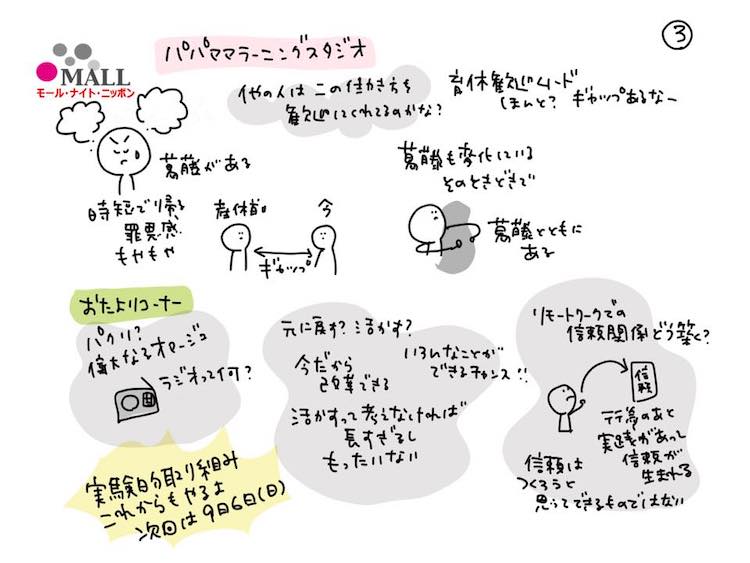 ③
MALL
モール・ナイト・ニッポン
パパママラーニングスタジオ
他の人はこの働き方を
歓迎してくれてるのかな?
育休歓迎ムード
ほんと? ギャップあるなー
葛藤がある
時短で帰る
罪悪感
もやもや
産休前
今
ギャップ
葛藤も変化している
そのときどきで
葛藤とともに
ある
おたよりコーナー
パクリ?
偉大なるオマージュ
ラジオって何?
元に戻す? 活かす?
今だから
改革できる
いろんなことが
できるチャンス!!
活かすって考えなければ
長すぎるし
もったいない
リモートワークでの
信頼関係どう築く?
信頼
行為のあと
実践があって
信頼が
生まれる
信頼は
つくろうと
思ってできるものではない
実験的取り組み
これからもやるよ
次回は9月6日(日)